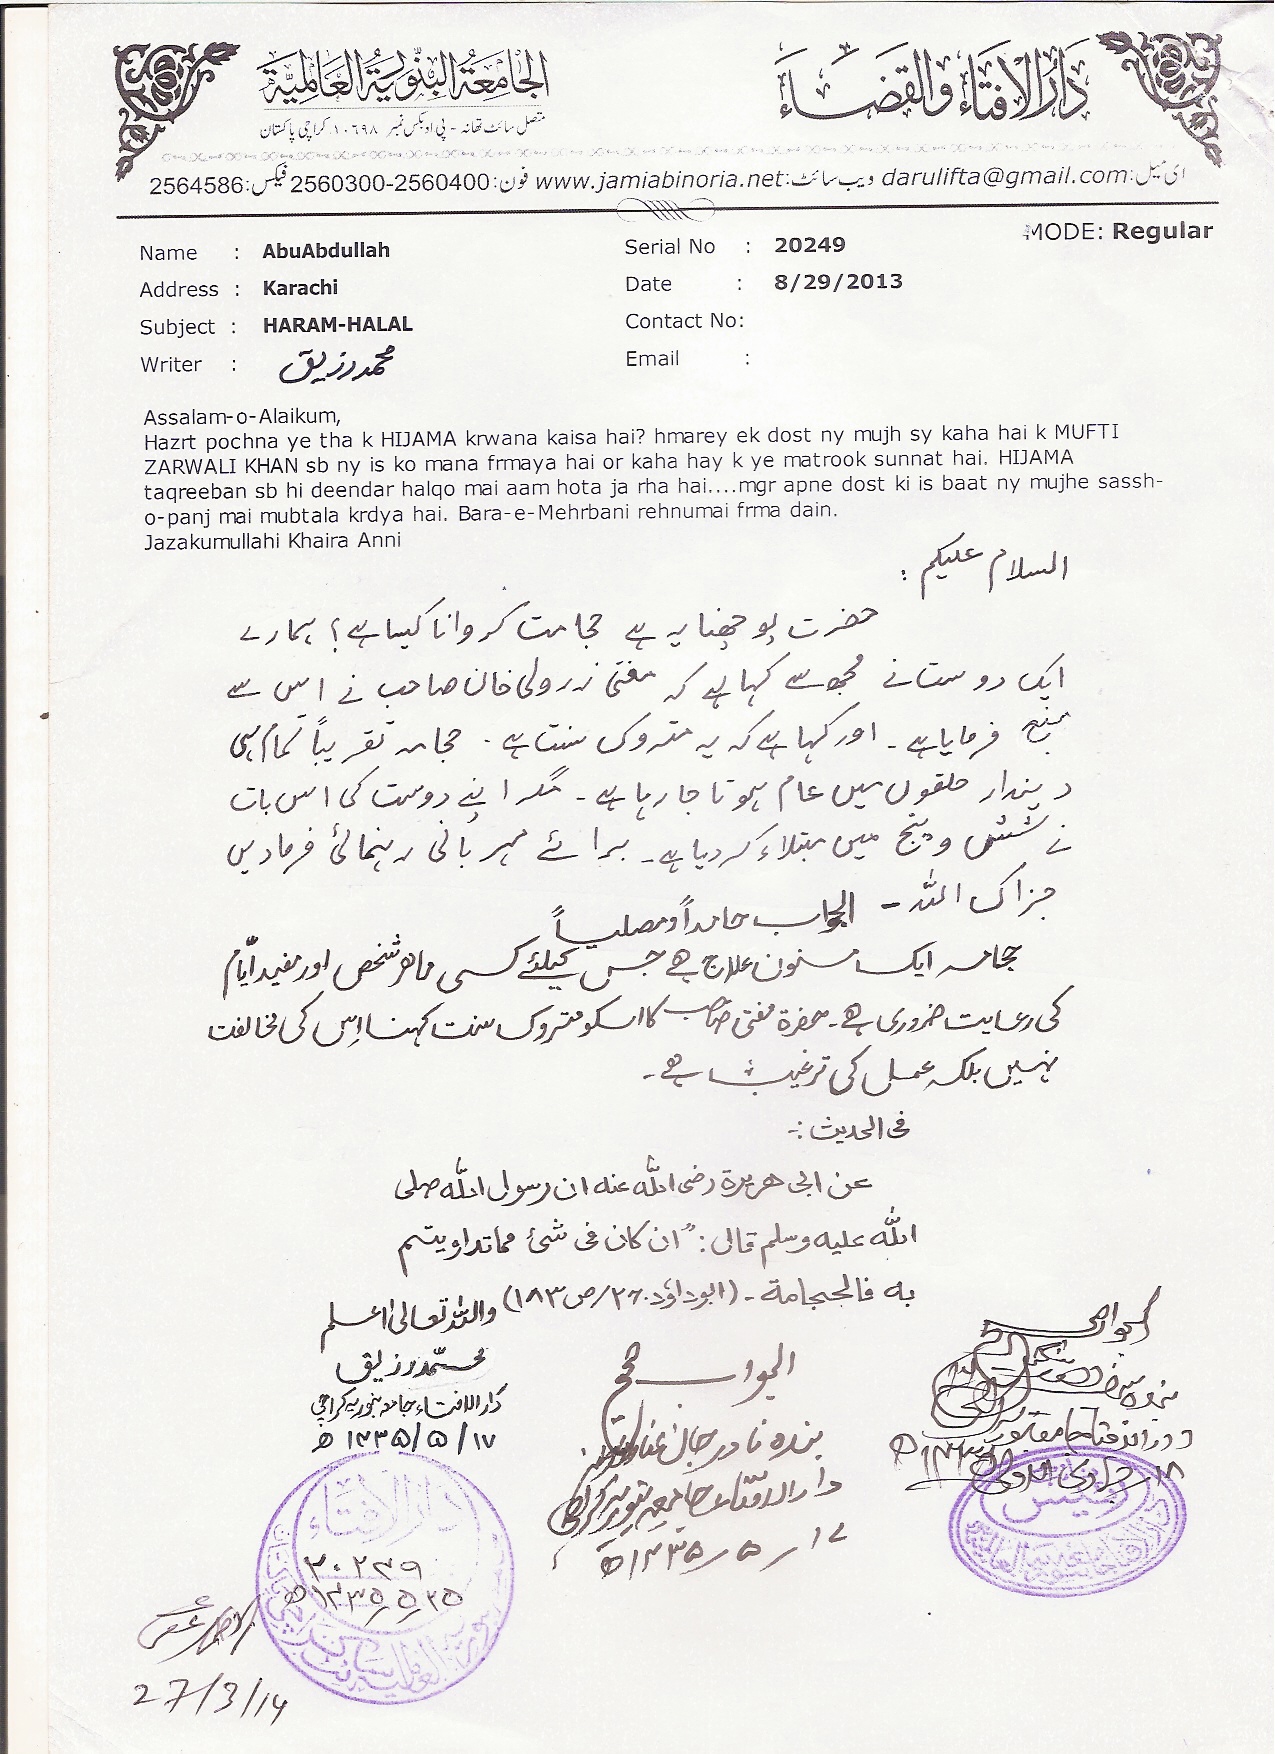 دارالافتاء والقضاء
الجامعة البنورية العالمية
متصل سائٹ تھانہ - پی او بکس نمبر ۱۰۶۹۸ کراچی پاکستان
ای میل: darulifta@gmail.com ویب سائٹ: www.jamiabinoria.net فون: 2560300-2560400 فیکس: 2564586
MODE: Regular
Name : AbuAbdullah
Serial No : 20249
Address : Karachi
Date : 8/29/2013
Subject : HARAM-HALAL
Contact No:
Writer : محمد رزیق
Email :
Assalam-o-Alaikum,
Hazrt pochna ye tha k HIJAMA krwana kaisa hai? hmarey ek dost ny mujh sy kaha hai k MUFTI
ZARWALI KHAN sb ny is ko mana frmaya hai or kaha hay k ye matrook sunnat hai. HIJAMA
taqreeban sb hi deendar halqo mai aam hota ja rha hai....mgr apne dost ki is baat ny mujhe sassh-
o-panj mai mubtala krdya hai. Bara-e-Mehrbani rehnumai frma dain.
Jazakumullahi Khaira Anni
السلام علیکم :
حضرت پوچھنا یہ ہے حجامت کروانا کیسا ہے؟ ہمارے
ایک دوست نے مجھ سے کہا ہے کہ مفتی زرولی خان صاحب نے اس سے
منع فرمایا ہے۔ اور کہا ہے کہ یہ متروک سنت ہے۔ حجامہ تقریباً تمام ہی
دیندار حلقوں میں عام ہوتا جا رہا ہے۔ مگر اپنے دوست کی اس بات
نے شش و پنج میں مبتلاء کر دیا ہے۔ برائے مہربانی رہنمائی فرمادیں
جزاک اللہ - الجواب حامداً ومصلیاً
حجامہ ایک مسنون علاج ہے جس کیلئے کسی ماھر شخص اور مفید ایّام
کی رعایت ضروری ہے۔ حضرۃ مفتی صاحب کا اسکو متروک سنت کہنا اِس کی مخالفت
نہیں بلکہ عمل کی ترغیب ہے۔
فی الحدیث :-
عن ابی ھریرة رضی اللہ عنہ ان رسول اللہ صلی
اللہ علیہ وسلم قال : "ان کان فی شئ مما تداویتم
بہ فالحجامة - (ابوداؤد ۲/ ص ۱۸۳) واللہ تعالیٰ اعلم
محمد رزیق
دارالافتاء جامعہ بنوریہ کراچی
۱۷/۵/۱۴۳۵ھ
الجواب صحیح
بندہ نادر جان
دارالافتاء جامعہ بنوریہ کراچی
۱۷/۵/۱۴۳۵ھ
الجواب صحیح
رئیس
دارالافتاء
۲۰۲۴۹
۲۵/۵/۱۴۳۵ھ
27/3/14